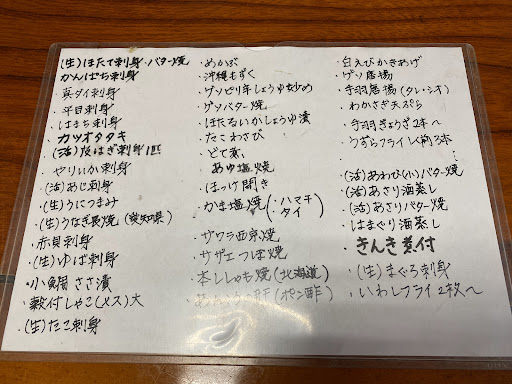 (生)ほたて刺身・バター焼
かんぱち刺身
・真ダイ刺身
・平目刺身
・はまち刺身
・カツオタタキ
・(活)皮はぎ刺身1匹
・やりいか刺身
・(活)あじ刺身
・(生)うにつまみ
・(生)うなぎ長焼(愛知県)
・赤貝刺身
・(生)ゆば刺身
・小鯛ささ漬
・穀付しゃこ(メス)大
・(生)たこ刺身
・めかぶ
・沖縄もずく
・ゲソピリ辛しょうゆ炒め
・ゲソバター焼
・ほたるいかしょうゆ漬
・たこわさび
・どて煮
・あゆ塩焼
・ほっけ開き
・かま塩焼(・ハマチ・タイ)
・サワラ西京焼
・サザエつぼ焼
・本ししゃも焼(北海道)
(ポン酢)
・白えびかきあげ
・ゲソ唐揚
・手羽唐揚(タレ・シオ)
・わかさぎ天ぷら
・手羽ぎょうざ2本〜
・うずらフライ1人前3本〜
・(活)あわび(小)バター焼
・(活)あさり酒蒸し
・(活)あさりバター焼
・はまぐり酒蒸し
・きんき煮付
・(生)まぐろ刺身
・いわしフライ2枚〜